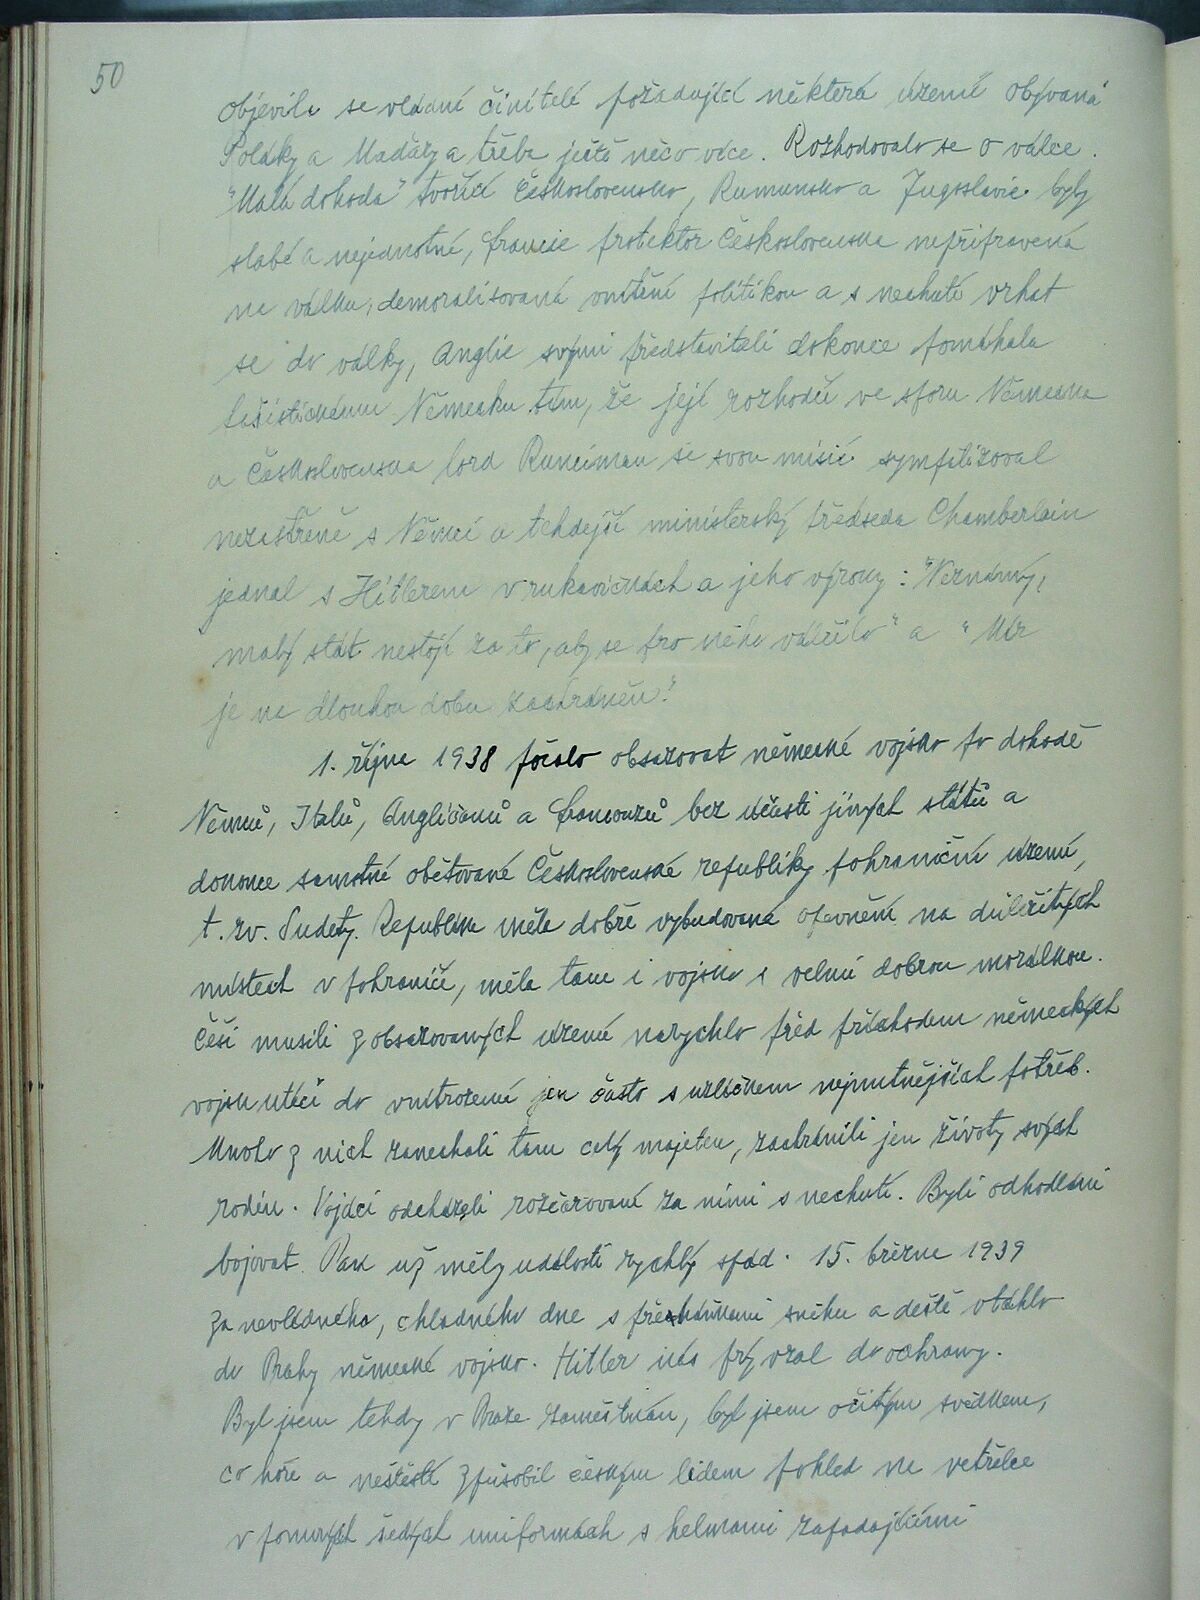 50
objevili se vládní činitelé požadující některá území obývaná
Poláky a Maďary a třeba ještě něco více. Rozhodovalo se o válce.
"Malá dohoda" tvořící Československo, Rumunsko a Jugoslavie byly
slabé a nejednotné, Francie protektor Československa nepřipravená
na válku, demoralisovaná vnitřní politikou a s nechutí vrhat
se do války, Anglie svými představiteli dokonce pomáhala
fašistickému Německu tím, že její rozhodčí ve sporu Německa
a Československa lord Runciman se svou misií sympatizoval
nezastřeně s Němci a tehdejší ministerský předseda Chamberlain
jednal s Hitlerem v rukavičkách a jeho výroky: "Neznámý,
malý stát nestojí za to, aby se pro něho válčilo" a "Mír
je na dlouhou dobu zachráněn."
1. října 1938 počalo obsazovat německé vojsko po dohodě
Němců, Italů, Angličanů a Francouzů bez účasti jiných států a
dokonce samotné obětované Československé republiky pohraniční území,
t. zv. Sudety. Republika měla dobře vybudovaná opevnění na důležitých
místech v pohraničí, měla tam i vojsko s velmi dobrou morálkou.
Češi musili z obsazovaných území narychlo před příchodem německých
vojsk utéci do vnitrozemí jen často s uzlíčkem nejnutnějších potřeb.
Mnoho z nich zanechali tam celý majetek, zachránili jen životy svých
rodin. Vojáci odcházeli rozčarovaní za nimi s nechutí. Byli odhodláni
bojovat. Pak už měly události rychlý spád. 15. března 1939
za nevlídného, chladného dne s přeháňkami sněhu a deště vtáhlo
do Prahy německé vojsko. Hitler nás prý vzal do ochrany.
Byl jsem tehdy v Praze zaměstnán, byl jsem očitým svědkem,
co hoře a neštěstí způsobil českým lidem pohled na vetřelce
v ponurých šedých uniformách s helmami zapadajícími